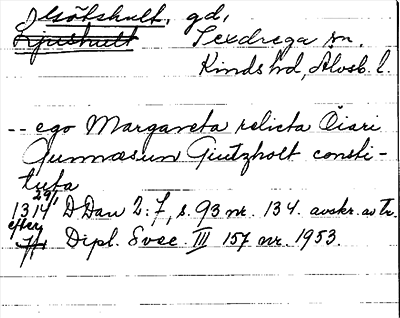 Götshult, gd,
Ljushult Sexdrega sn.
Kinds hd, Älvsb. l.
-- ego Margareta relicta Ôiari
Gunnæsun Giutzholt consti-
tuta
1314 29/1 D Dan 2:7, s. 93 nr. 134. avskr. av Tr.
efter Dipl. Svec III 157 nr. 1953.